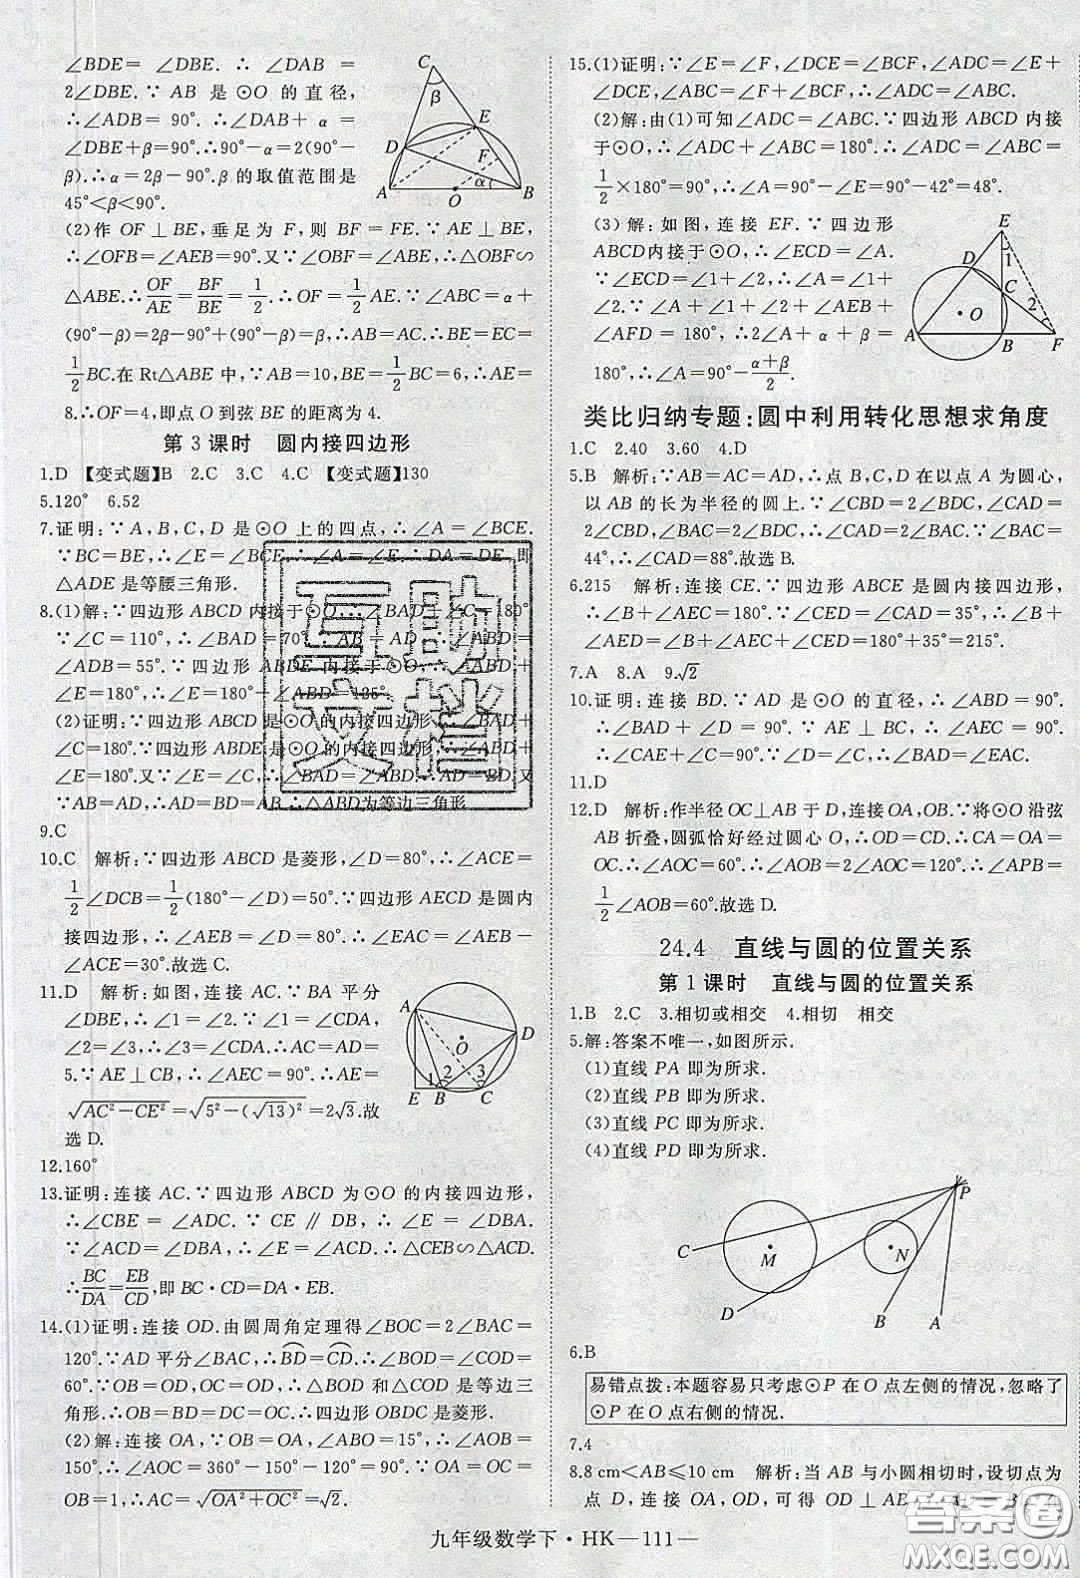 ∠BDE=∠DBE.∴∠DAB=
2∠DBE.∵AB 是⊙O 的直径,
∴∠ADB=90°.∴∠DAB+α=
∠DBE+β=90°.∴90°-α=2(90°-
β),∴α=2β-90°.β的取值范围是
45°<β<90°.
(2)作 OF⊥BE,垂足为 F,则 BF=FE.∵AE⊥BE,
∴∠OFB=∠AEB=90°.又∵∠OBF=∠ABE,∴△OBF∽
△ABE.∴OF/AE=BF/BE=1/2.∴OF=1/2AE.∵∠ABC=α+
(90°-β)=2β-90°+(90°-β)=β,∴AB=AC.∴BE=EC=
1/2BC.在 Rt△ABE 中,∵AB=10,BE=1/2BC=6,∴AE=
8.∴OF=4,即点 O 到弦 BE 的距离为 4.
C
β
E
D
F
α
A
O
B
第 3 课时 圆内接四边形
1.D 【变式题】B 2.C 3.C 4.C 【变式题】130
5.120° 6.52
7.证明:∵A,B,C,D 是⊙O 上的四点,∴∠A=∠BCE.
∵BC=BE,∴∠E=∠BCE,∴∠A=∠E,∴DA=DE,即
△ADE 是等腰三角形.
8.(1)解:∵四边形 ABCD 内接于⊙O,∴∠BAD+∠C=180°
∵∠C=110°,∴∠BAD=70°.∵AB=AD,∴∠ABD=
∠ADB=55°.∵四边形 ABDE 内接于⊙O,∴∠ABD+
∠E=180°,∴∠E=180°-∠ABD=125°.
(2)证明:∵四边形 ABCD 是⊙O 的内接四边形,∴∠BAD+
∠C=180°.∵四边形 ABDE 是⊙O 的内接四边形,∴∠ABD+
∠E=180°.又∵∠E=∠C,∴∠BAD=∠ABD.∴AD=BD.又
∵AB=AD,∴AD=BD=AB.∴△ABD 为等边三角形.
9.C
10.C 解析:∵四边形 ABCD 是菱形,∠D=80°,∴∠ACE=
1/2∠DCB=1/2(180°-∠D)=50°.∵四边形 AECD 是圆内
接四边形,∴∠AEB=∠D=80°,∴∠EAC=∠AEB-
∠ACE=30°.故选 C.
11.D 解析:如图,连接 AC.∵BA 平分
∠DBE,∴∠1=∠2.∵∠1=∠CDA,
∠2=∠3,∴∠3=∠CDA.∴AC=AD=
5.∵AE⊥CB,∴∠AEC=90°.∴AE=
√AC²-CE²=√5²-(√13)²=2√3.故
选 D.
A
D
O
1
2
3
E
B
C
12.160°
13.证明:连接 AC.∵四边形 ABCD 为⊙O 的内接四边形,
∴∠CBE=∠ADC.∵CE∥DB,∴∠E=∠DBA.
∵∠DCA=∠DBA,∴∠E=∠ACD.∴△CEB∽△ACD.
∴BC/DA=EB/CD,即 BC·CD=DA·EB.
14.(1)证明:连接 OD.由圆周角定理得∠BOC=2∠BAC=
120°.∵AD 平分∠BAC,∴BD=CD.∴∠BOD=∠COD=
60°.∵OB=OD=OC,∴△BOD 和△COD 是等边三
角形.∴OB=BD=DC=OC.∴四边形 OBDC 是菱形.
(2)解:连接 OA,∵OB=OA,∠ABO=15°,∴∠AOB=
150°.∴∠AOC=360°-150°-120°=90°.∵OA=OC=
OB=BD=1,∴AC=√OA²+OC²=√2.
15.(1)证明:∵∠E=∠F,∠DCE=∠BCF,∠ADC=∠E+
∠DCE,∠ABC=∠F+∠BCF,∴∠ADC=∠ABC.
(2)解:由(1)可知∠ADC=∠ABC.∵四边形 ABCD 内接
于⊙O,∴∠ADC+∠ABC=180°.∴∠ADC=∠ABC=
1/2×180°=90°,∴∠A=90°-∠E=90°-42°=48°.
(3)解:如图,连接 EF.∵四边形
ABCD内接于⊙O,∴∠ECD=∠A.
∵∠ECD=∠1+∠2,∴∠A=∠1+
∠2.∵∠A+∠1+∠2+∠AEB+
∠AFD=180°,∴2∠A+α+β=
180°,∴∠A=90°-α+β/2.
E
D
1
C
2
O
A
B
F
类比归纳专题:圆中利用转化思想求角度
1.C 2.40 3.60 4.D
5.B 解析:∵AB=AC=AD,∴点 B,C,D 在以点 A 为圆心,
以 AB 的长为半径的圆上.∵∠CBD=2∠BDC,∠CAD=
2∠CBD,∠BAC=2∠BDC,∴∠CAD=2∠BAC.∵∠BAC=
44°,∴∠CAD=88°.故选 B.
6.215 解析:连接 CE.∵五边形 ABCDE 是圆内接五边形,
∴∠B+∠AEC=180°.∵∠CED=∠CAD=35°,∴∠B+
∠AED=∠B+∠AEC+∠CED=180°+35°=215°.
7.A 8.A 9.√2
10.证明:连接 BD.∵AD 是⊙O 的直径,∴∠ABD=90°.
∴∠BAD+∠D=90°.∵AE⊥BC,∴∠AEC=90°.
∴∠CAE+∠C=90°.∵∠D=∠C,∴∠BAD=∠CAE.
11.D
12.D 解析:作半径 OC⊥AB 于 D,连接 OA,OB.∵将⊙O 沿弦
AB 折叠,圆弧恰好经过圆心 O,∴OD=CD.∴CA=OA=
OC.∴∠AOC=60°.∴∠AOB=2∠AOC=120°.∴∠APB=
1/2∠AOB=60°.故选 D.
24.4 直线与圆的位置关系
第 1 课时 直线与圆的位置关系
1.B 2.C 3.相切或相交 4.相切 相交
5.解:答案不唯一,如图所示.
(1)直线 PA 即为所求.
(2)直线 PB 即为所求.
(3)直线 PC 即为所求.
(4)直线 PD 即为所求.
P
C
M
N
D
B
A
6.B
易错点拨:本题容易只考虑⊙P 在 O 点左侧的情况,忽略了
⊙P 在 O 点右侧的情况.
7.4
8.8 cm<AB≤10 cm 解析:当 AB 与小圆相切时,设切点为
点 D,连接 OA,OD,可得 OD⊥AB
九年级数学下·HK—111—
互助
文档
答案圈
MXQE.COM